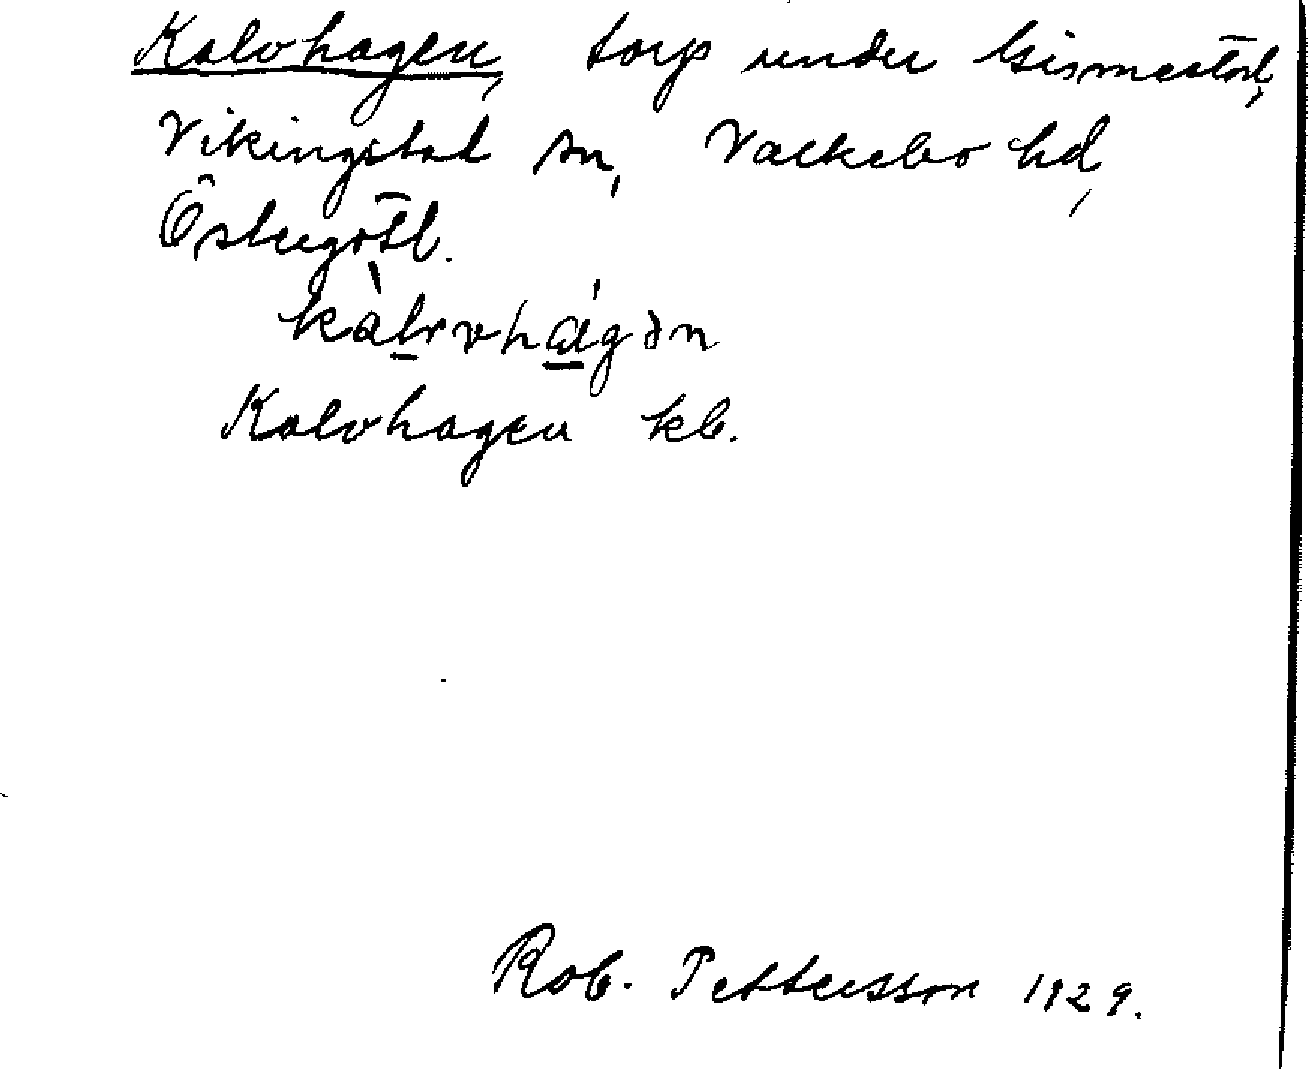 Kalvhagen, torp under Gismestad,
Vikingstad sn, Valkebo hd,
Östergötl.
Kalvhagen kb.
Rob. Pettersson 1929.